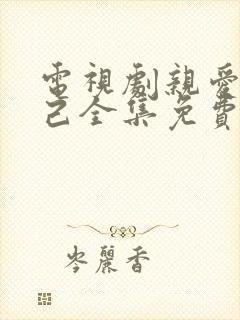 電視劇親愛
己全集免費
岑麗香